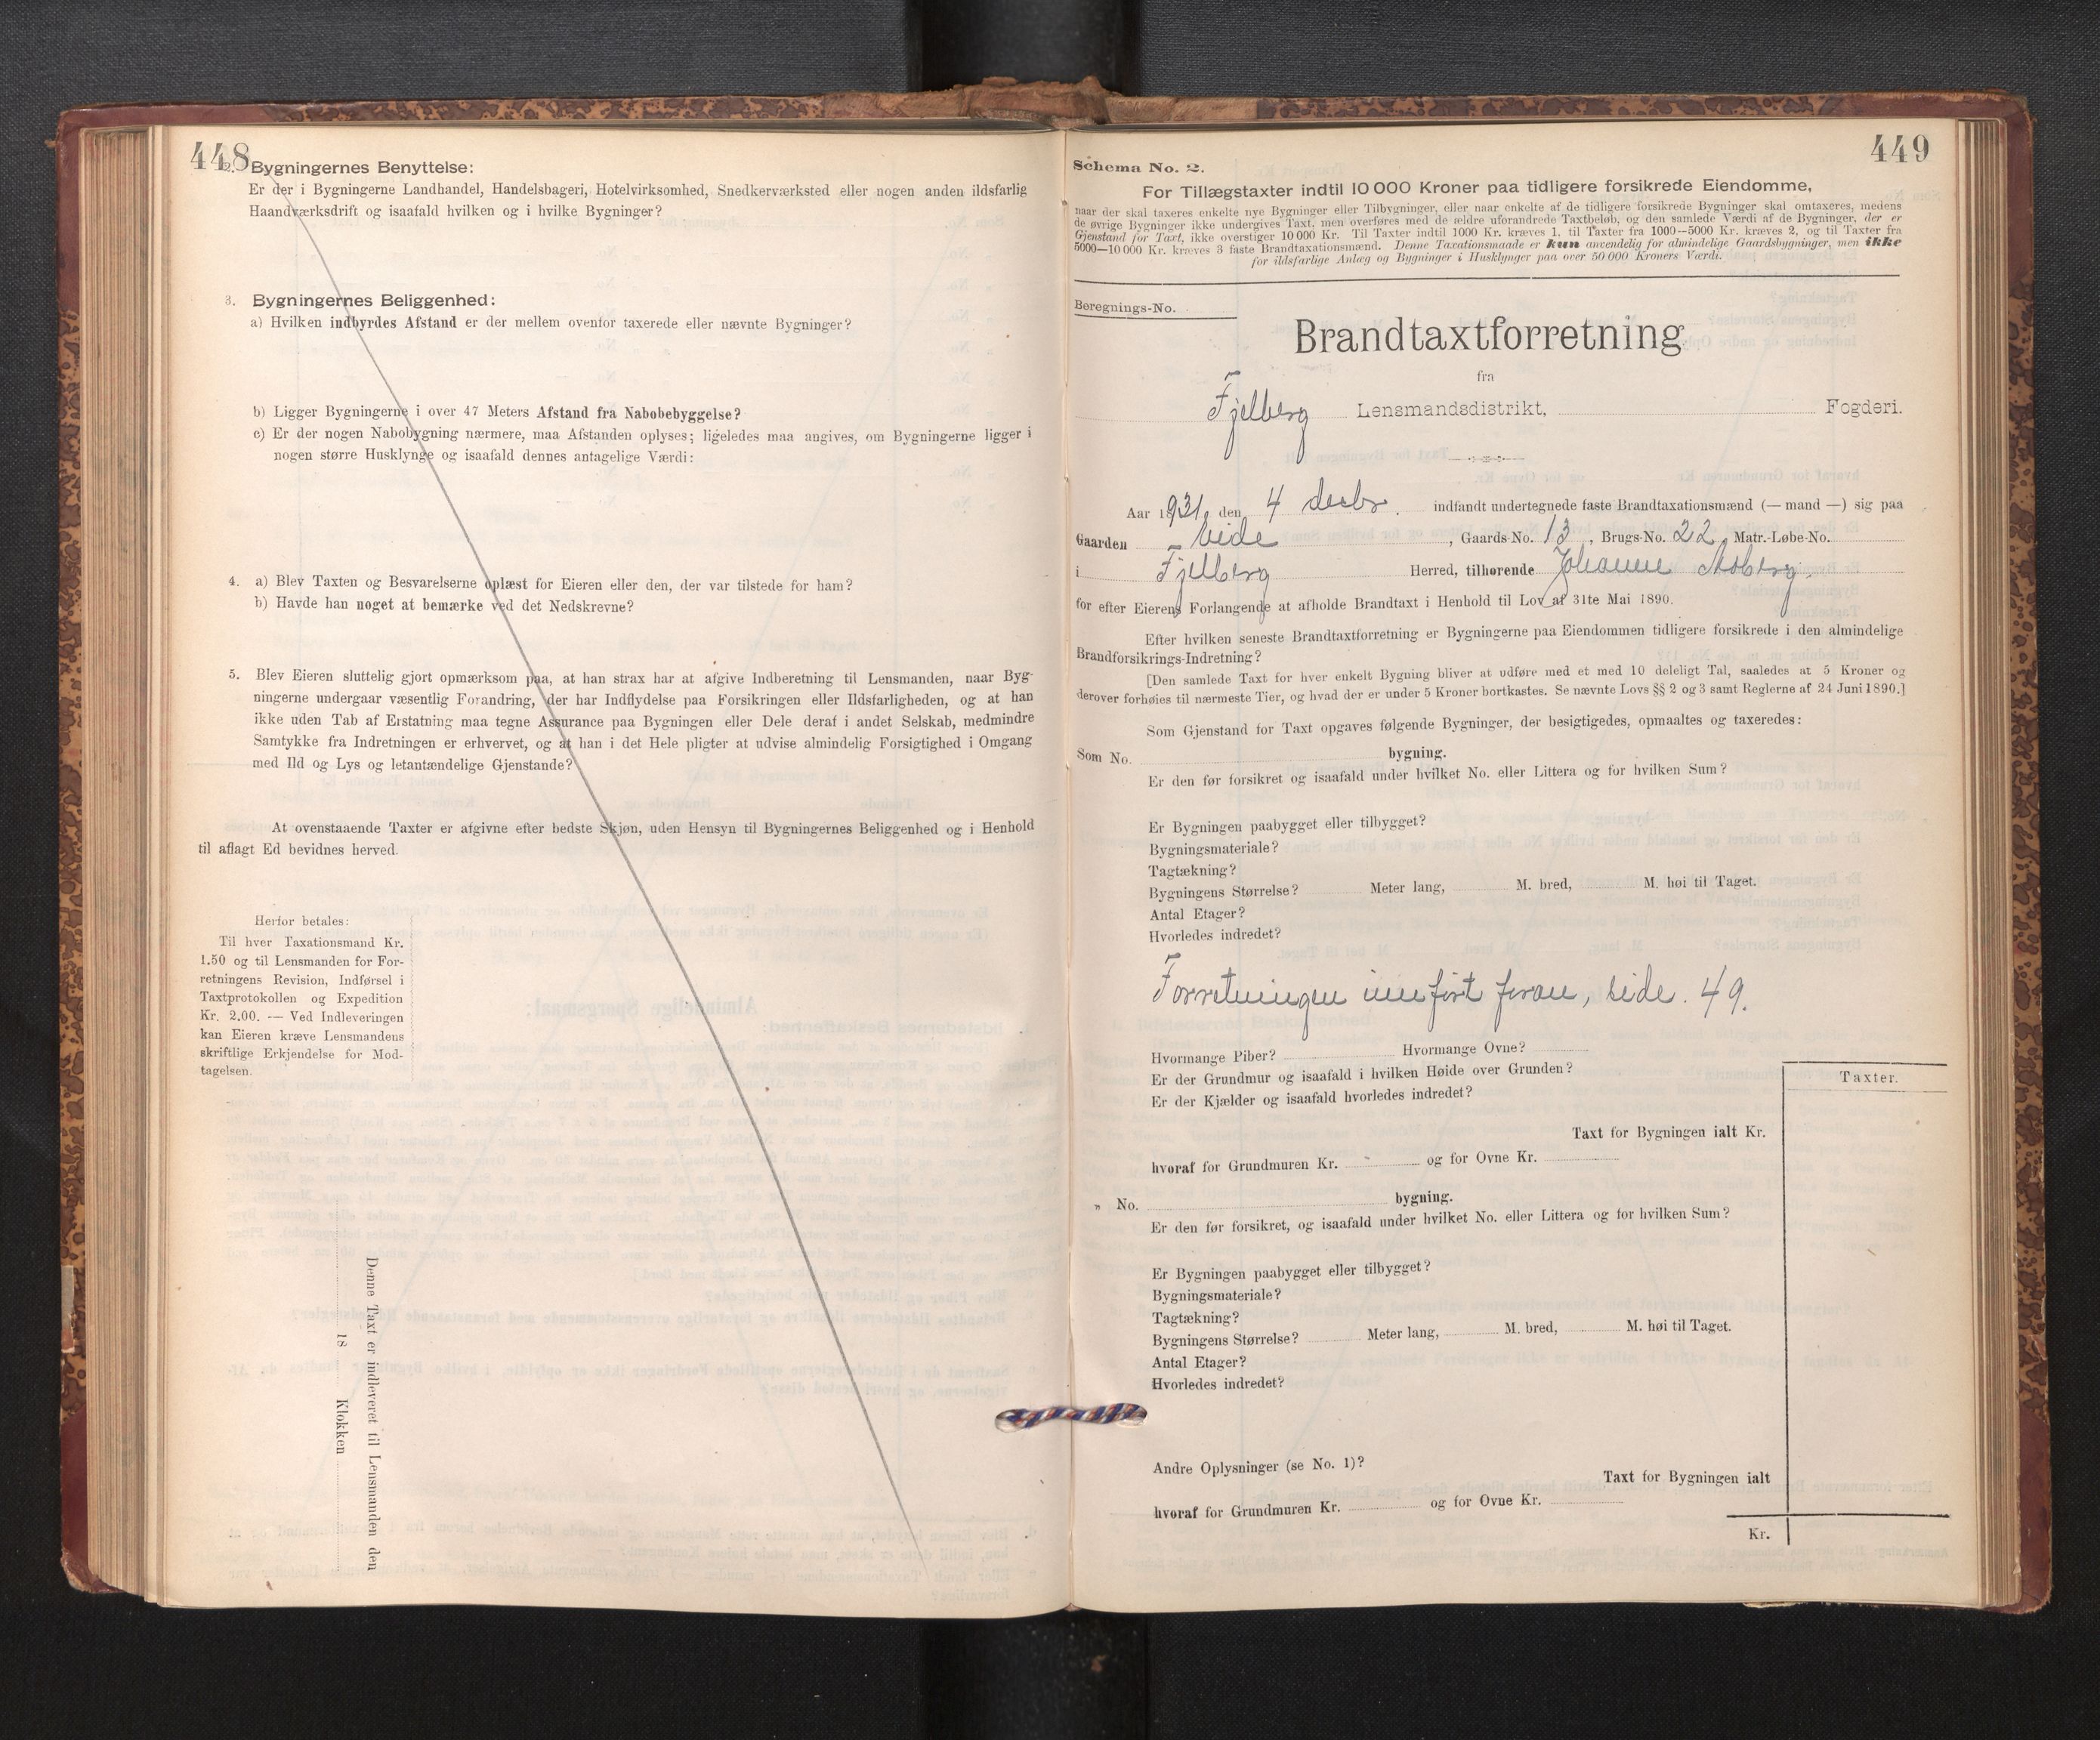 448
2. Bygningernes Benyttelse:
Er der i Bygningerne Landhandel, Handelsbageri, Hotelvirksomhed, Snedkerværksted eller nogen anden ildsfarlig
Haandværksdrift og isaafald hvilken og i hvilke Bygninger?
3. Bygningernes Beliggenhed:
a) Hvilken indbyrdes Afstand er der mellem ovenfor taxerede eller nævnte Bygninger?
b) Ligger Bygningerne i over 47 Meters Afstand fra Nabobebyggelse?
c) Er der nogen Nabobygning nærmere, maa Afstanden oplyses; ligeledes maa angives, om Bygningerne ligger i
nogen større Husklynge og isaafald dennes antagelige Værdi:
4. a) Blev Taxten og Besvarelserne oplæst for Eieren eller den, der var tilstede for ham?
b) Havde han noget at bemærke ved det Nedskrevne?
5. Blev Eieren sluttelig gjort opmærksom paa, at han strax har at afgive Indberetning til Lensmanden, naar Byg-
ningerne undergaar væsentlig Forandring, der har Indflydelse paa Forsikringen eller Ildsfarligheden, og at han
ikke uden Tab af Erstatning maa tegne Assurance paa Bygningen eller Dele deraf i andet Selskab, medmindre
Samtykke fra Indretningen er erhvervet, og at han i det Hele pligter at udvise almindelig Forsigtighed i Omgang
med Ild og Lys og letantændelige Gjenstande?
At ovenstaaende Taxter er afgivne efter bedste Skjøn, uden Hensyn til Bygningernes Beliggenhed og i Henhold
til aflagt Ed bevidnes herved.
Herfor betales:
Til hver Taxationsmand Kr.
1.50 og til Lensmanden for For-
retningens Revision, Indførsel i
Taxtprotokollen og Expedition
Kr. 2.00. — Ved Indleveringen
kan Eieren kræve Lensmandens
skriftlige Erkjendelse for Mod-
tagelsen.
Denne Taxt er indleveret til Lensmanden den
18 Klokken
449
Schema No. 2.
For Tillægstaxter indtil 10 000 Kroner paa tidligere forsikrede Eiendomme,
naar der skal taxeres enkelte nye Bygninger eller Tilbygninger, eller naar enkelte af de tidligere forsikrede Bygninger skal omtaxeres, medens
de øvrige Bygninger ikke undergives Taxt, men overføres med de ældre uforandrede Taxtbeløb, og den samlede Værdi af de Bygninger, der er
Gjenstand for Taxt, ikke overstiger 10 000 Kr. Til Taxter indtil 1000 Kr. kræves 1, til Taxter fra 1000—5000 Kr. kræves 2, og til Taxter fra
5000—10 000 Kr. kræves 3 faste Brandtaxationsmænd. Denne Taxationsmaade er kun anvendelig for almindelige Gaardsbygninger, men ikke
for ildsfarlige Anlæg og Bygninger i Husklynger paa over 50 000 Kroners Værdi.
Beregnings-No.
Brandtaxtforretning
fra
Fjelberg Lensmandsdistrikt, Fogderi.
Aar 1931, den 4 decbr. indfandt undertegnede faste Brandtaxationsmænd (— mand —) sig paa
Gaarden Eide, Gaards-No. 13, Brugs-No. 22, Matr.-Løbe-No.
i Fjelberg Herred, tilhørende Johanne Moberg.
for efter Eierens Forlangende at afholde Brandtaxt i Henhold til Lov af 31te Mai 1890.
Efter hvilken seneste Brandtaxtforretning er Bygningerne paa Eiendommen tidligere forsikrede i den almindelige
Brandforsikrings-Indretning?
[Den samlede Taxt for hver enkelt Bygning bliver at udføre med et med 10 deleligt Tal, saaledes at 5 Kroner og
derover forhøies til nærmeste Tier, og hvad der er under 5 Kroner bortkastes. Se nævnte Lovs §§ 2 og 3 samt Reglerne af 24 Juni 1890.]
Som Gjenstand for Taxt opgaves følgende Bygninger, der besigtigedes, opmaaltes og taxeredes:
Som No. bygning.
Er den før forsikret og isaafald under hvilket No. eller Littera og for hvilken Sum?
Er Bygningen paabygget eller tilbygget?
Bygningsmateriale?
Tagtækning?
Bygningens Størrelse? Meter lang, M. bred, M. høi til Taget.
Antal Etager?
Hvorledes indredet?
Forretningen innført foran, side. 49.
Hvormange Piber? Hvormange Ovne?
Er der Grundmur og isaafald i hvilken Høide over Grunden?
Er der Kjælder og isaafald hvorledes indredet?
Taxter.
Taxt for Bygningen ialt Kr.
hvoraf for Grundmuren Kr. og for Ovne Kr.
„ No. bygning.
Er den før forsikret, og isaafald under hvilket No. eller Littera og for hvilken Sum?
Er Bygningen paabygget eller tilbygget?
Bygningsmateriale?
Tagtækning?
Bygningens Størrelse? Meter lang, M. bred, M. høi til Taget.
Antal Etager?
Hvorledes indredet?
Andre Oplysninger (se No. 1)?
Taxt for Bygningen ialt
hvoraf for Grundmuren Kr. og for Ovne Kr.
Kr.